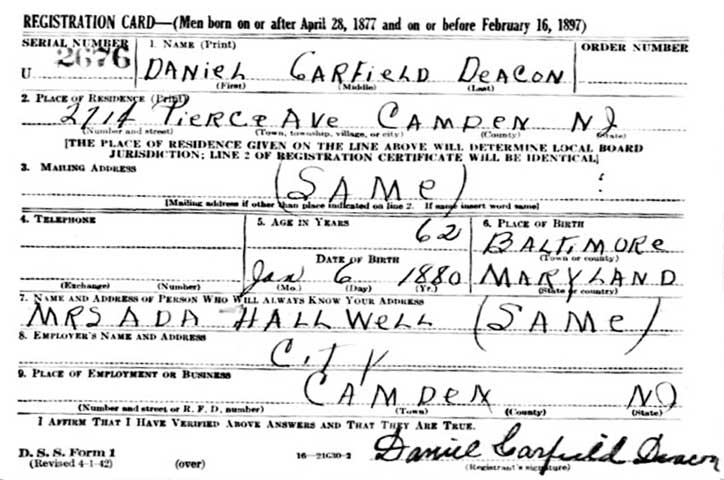 REGISTRATION CARD—(Men born on or after April 28, 1877 and on or before February 16, 1897)
SERIAL NUMBER 1. NAME (Print) ORDER NUMBER
U 2676 DANIEL GARFIELD DEACON
(First) (Middle) (Last)
2. PLACE OF RESIDENCE (Print)
2714 PIERCE AVE CAMDEN NJ
(Number and street) (Town, township, village, or city) (County) (State)
[THE PLACE OF RESIDENCE GIVEN ON THE LINE ABOVE WILL DETERMINE LOCAL BOARD
JURISDICTION; LINE 2 OF REGISTRATION CERTIFICATE WILL BE IDENTICAL]
3. MAILING ADDRESS
(SAME)
[Mailing address if other than place indicated on line 2. If same insert word same]
4. TELEPHONE 5. AGE IN YEARS 6. PLACE OF BIRTH
62 BALTIMORE
DATE OF BIRTH (Town or county)
Jan 6 1880 MARYLAND
(Exchange) (Number) (Mo.) (Day) (Yr.) (State or country)
7. NAME AND ADDRESS OF PERSON WHO WILL ALWAYS KNOW YOUR ADDRESS
MRS ADA HALLWELL (SAME)
8. EMPLOYER'S NAME AND ADDRESS
CITY
9. PLACE OF EMPLOYMENT OR BUSINESS
CAMDEN NJ
(Number and street or R. F. D. number) (Town) (County) (State)
I AFFIRM THAT I HAVE VERIFIED ABOVE ANSWERS AND THAT THEY ARE TRUE.
D. S. S. Form 1
(Revised 4-1-42) (over) 16—21630-2 Daniel Garfield Deacon
(Registrant's signature)